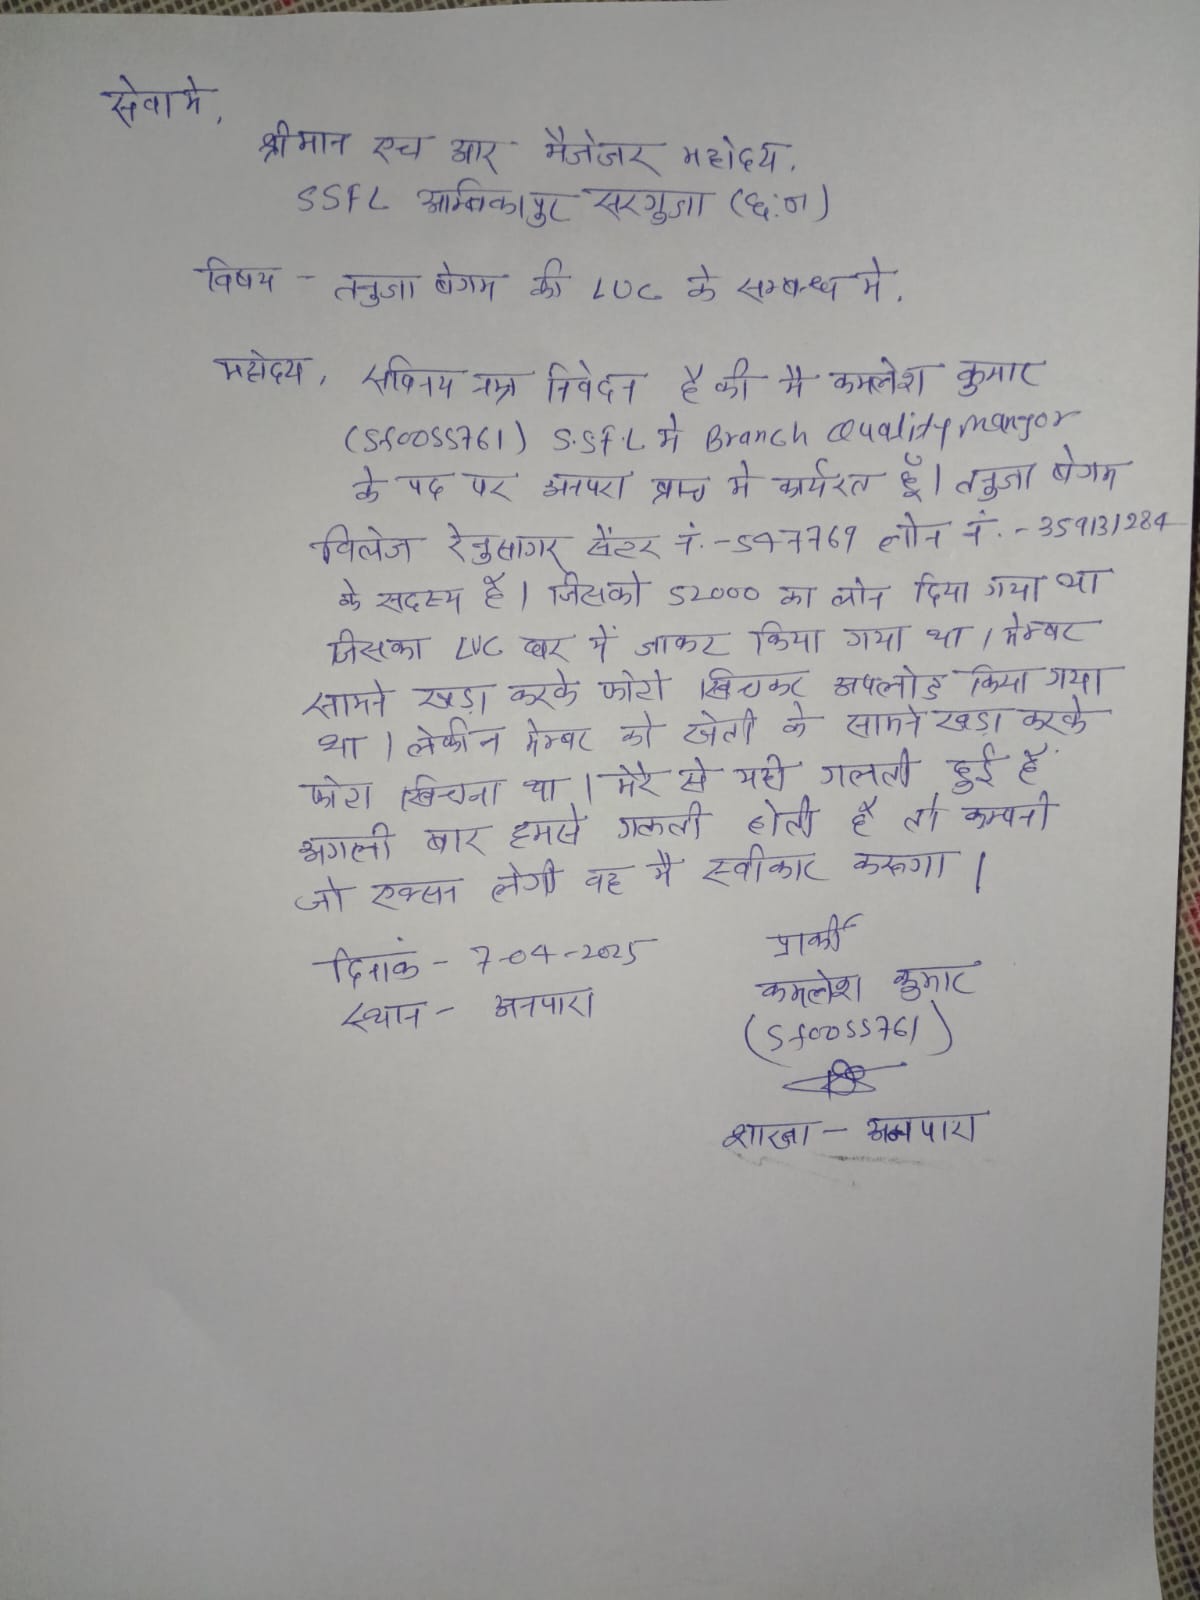 सेवा मे,
श्रीमान एच आर मैनेजर महोदय,
SSFL अम्बिकापुर सरगुजा (छ:ग)
विषय - तनुजा बेगम की LUC के सम्बन्ध मे,
महोदय, सविनय नम्र निवेदन है की मै कमलेश कुमार
(Sf0055761) S.S.F.L मे Branch Quality Mangor
के पद पर अनपरा ब्रान्च मे कार्यरत हूँ। तनुजा बेगम
विलेज रेनुसागर सेंटर नं.-547769 लोन नं.-359131284
के सदस्य है। जिसको 52000 का लोन दिया गया था
जिसका LUC घर में जाकर किया गया था। मेम्बर
सामने खड़ा करके फोटो खिचकर अपलोड किया गया
था। लेकीन मेम्बर को खेती के सामने खड़ा करके
फोटा खिचना था। मेरे से यही गलती हुई है
अगली बार हमसे गलती होती है तो कम्पनी
जो एक्सन लेगी वह मै स्वीकार करूगा।
दिनाकं - 7-04-2025
स्थान - अनपारा
प्रार्थी
कमलेश कुमार
(Sf0055761)
शाखा - अनपारा